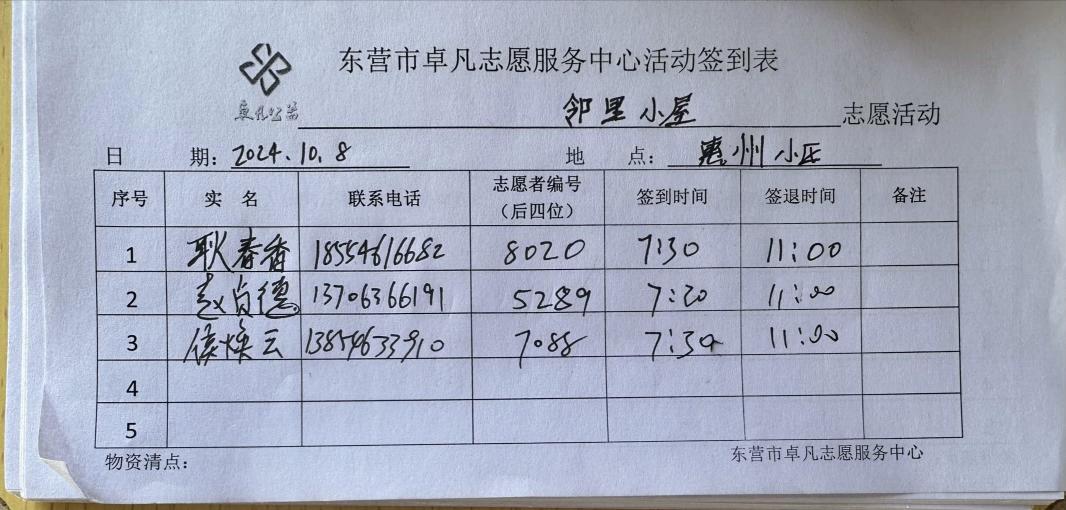 东营市卓凡志愿服务中心活动签到表
卓凡公益
邻里小屋 志愿活动
日 期: 2024.10.8 地 点: 惠州小区
序号 实 名 联系电话 志愿者编号（后四位） 签到时间 签退时间 备注
1 耿春香 18554616682 8020 7:30 11:00
2 赵贞德 13706366191 5289 7:30 11:00
3 侯焕云 13854633910 7088 7:30 11:00
4
5
物资清点: 东营市卓凡志愿服务中心